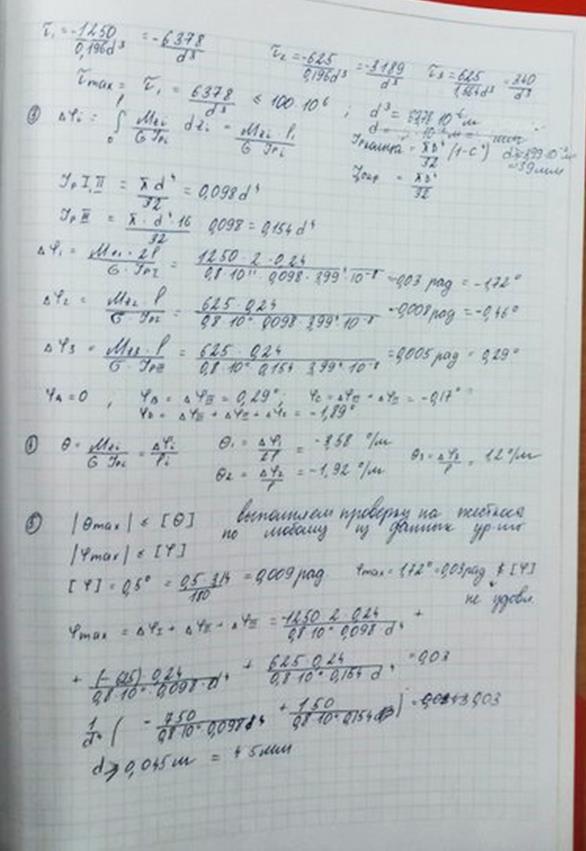 τ₁ = -1250 / 0,196d³ = -6378 / d³   τ₂ = -625 / 0,196d³ = -3189 / d³   τ₃ = 625 / d³ = 340 / d³
τmax = τ₁ = 6378 / d³ ≤ 100·10⁶ ; d³ = 10⁻⁶ м
③ Δφi = ∫₀ˡ Mzi / G Jpi dzi = Mzi li / G Jpi   = πD⁴ / 32 (1-c⁴)   = 39 мм
Jp I,II = πd⁴ / 32 = 0,098d⁴   = πD⁴ / 32
Jp III = π·d⁴·16 / 32 0,098 = 0,154d⁴
Δφ₁ = Mz1·2l / G·JpI = 1250·2·0,24 / 0,8·10¹¹·0,098·3,99⁴·10⁻⁸ = -0,03 рад = -1,72°
Δφ₂ = Mz2·l / G·JpII = 625·0,24 / 0,8·10¹¹·0,098·3,99⁴·10⁻⁸ = -0,008 рад = -0,46°
Δφ₃ = Mz3·l / G·JpIII = 625·0,24 / 0,8·10¹¹·0,154·3,99⁴·10⁻⁸ = 0,005 рад = 0,29°
φA = 0 ; φB = ΔφIII = 0,29° ; φC = ΔφIII + ΔφII = -0,17°
φD = ΔφIII + ΔφII + ΔφI = -1,89°
θ = Mzi / G Jpi = Δφi / li   θ₁ = Δφ₁ / 2l = -3,58 °/м
θ₂ = Δφ₂ / l = -1,92 °/м   θ₃ = Δφ₃ / l = 1,2 °/м
⑤ |θmax| ≤ [θ]   выполняем проверку на жесткость
по любому из данных ур-ий
|φmax| ≤ [φ]
[φ] = 0,5° = 0,5·3,14 / 180 = 0,009 рад.   φmax = 1,72° = 0,03 рад ≰ [φ]
не удовл.
φmax = ΔφI + ΔφII + ΔφIII = -1250·2·0,24 / 0,8·10¹¹·0,098·d⁴ +
+ (-625)·0,24 / 0,8·10¹¹·0,098·d⁴ + 625·0,24 / 0,8·10¹¹·0,154 d⁴ = 0,03
1 / d⁴ ( - 750 / 0,8·10¹¹·0,098 + 150 / 0,8·10¹¹·0,154 ) = 0,03
d ≥ 0,045 м = 45 мм